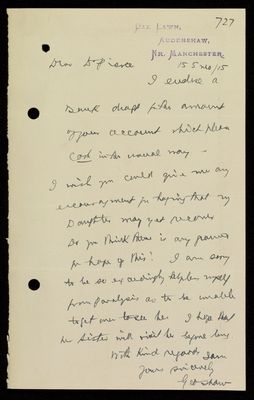 727
Oak Lawn,
Audenshaw,
Nr. Manchester.
Dear Dr Pierce
I enclose a
Bank draft for the amount
of your account which please
in the usual way -
I wish you could give me any
encouragement for hoping that my
Daughter may yet recover
Do you think there is any ground
for hope of this? I am sorry
to be so exceedingly helpless myself
from paralysis as to be unable
to get over to see her. I hope that
her Sister will visit her before long.
With kind regards I am
Yours sincerely